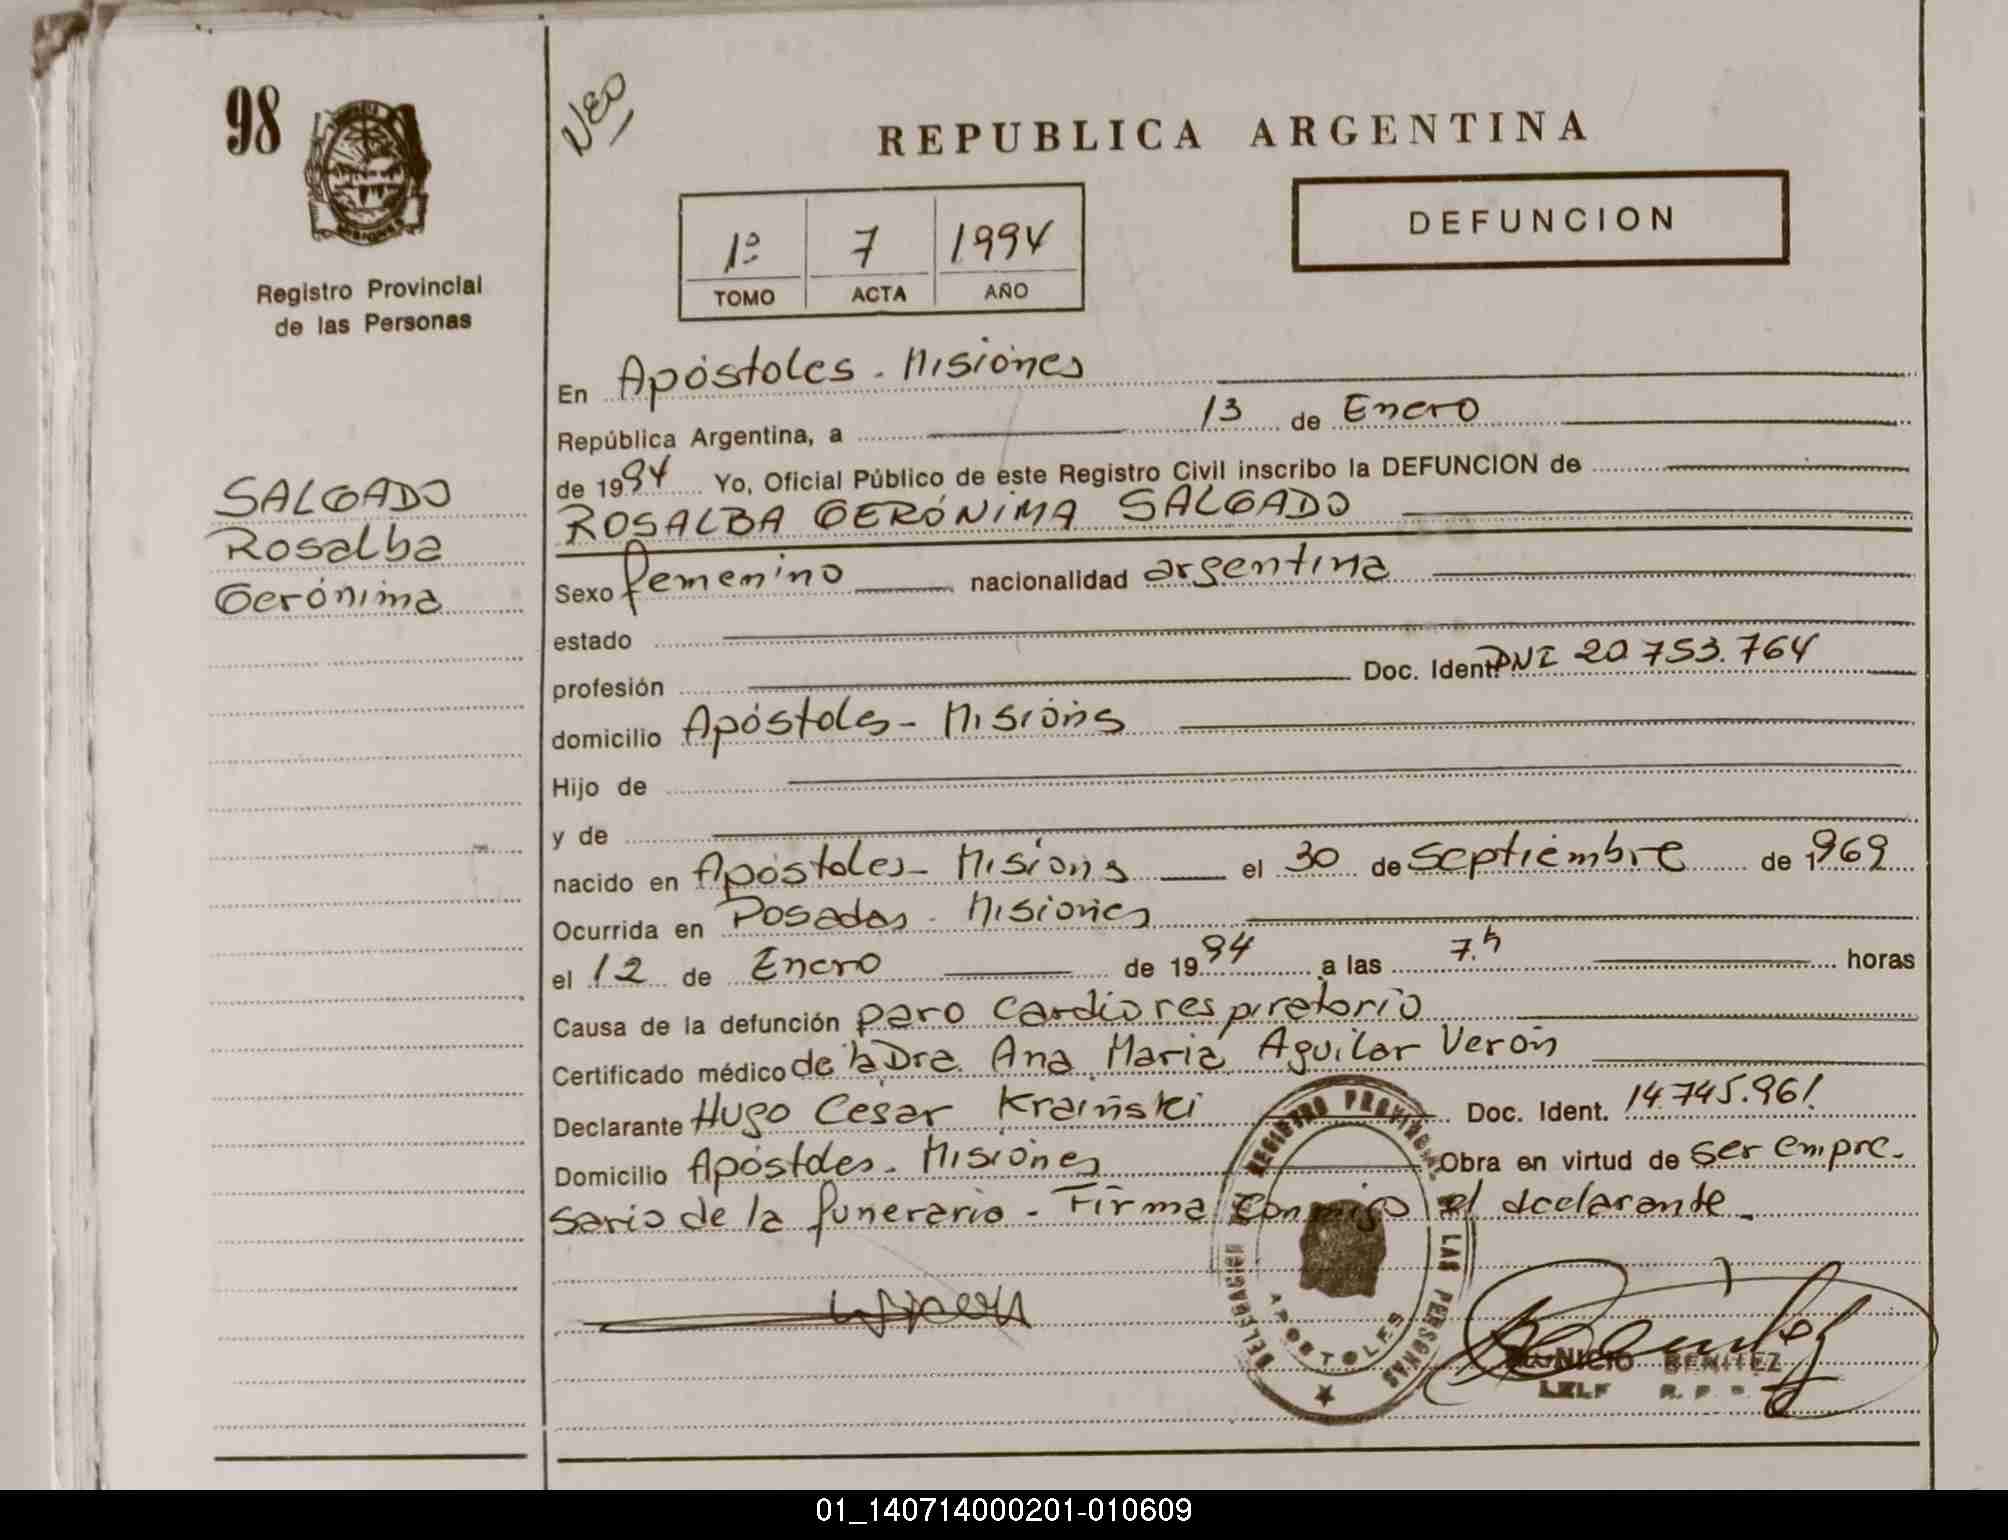 98
NEO
REPUBLICA ARGENTINA
DEFUNCION
1º 7 1994
TOMO ACTA AÑO
Registro Provincial
de las Personas
SALGADO
Rosalba
Gerónima
En Apóstoles - Misiones
República Argentina, a 13 de Enero
de 1994 Yo, Oficial Público de este Registro Civil inscribo la DEFUNCION de
ROSALBA GERÓNIMA SALGADO
Sexo femenino nacionalidad argentina
estado
profesión Doc. Ident. DNI 20.753.764
domicilio Apóstoles - Misiones
Hijo de
y de
nacido en Apóstoles - Misiones el 30 de septiembre de 1969
Ocurrida en Posadas - Misiones
el 12 de Enero de 1994 a las 7.h horas
Causa de la defunción paro cardiorespiratorio
Certificado médico de la Dra. Ana María Aguilar Verón
Declarante Hugo Cesar Kraiñski Doc. Ident. 14.745.961
Domicilio Apóstoles - Misiones Obra en virtud de ser empre-
sario de la funeraria - Firma conmigo el declarante
DELEGACION REGISTRO PROVINCIAL DE LAS PERSONAS
APOSTOLES
BENITEZ
01_140714000201-010609